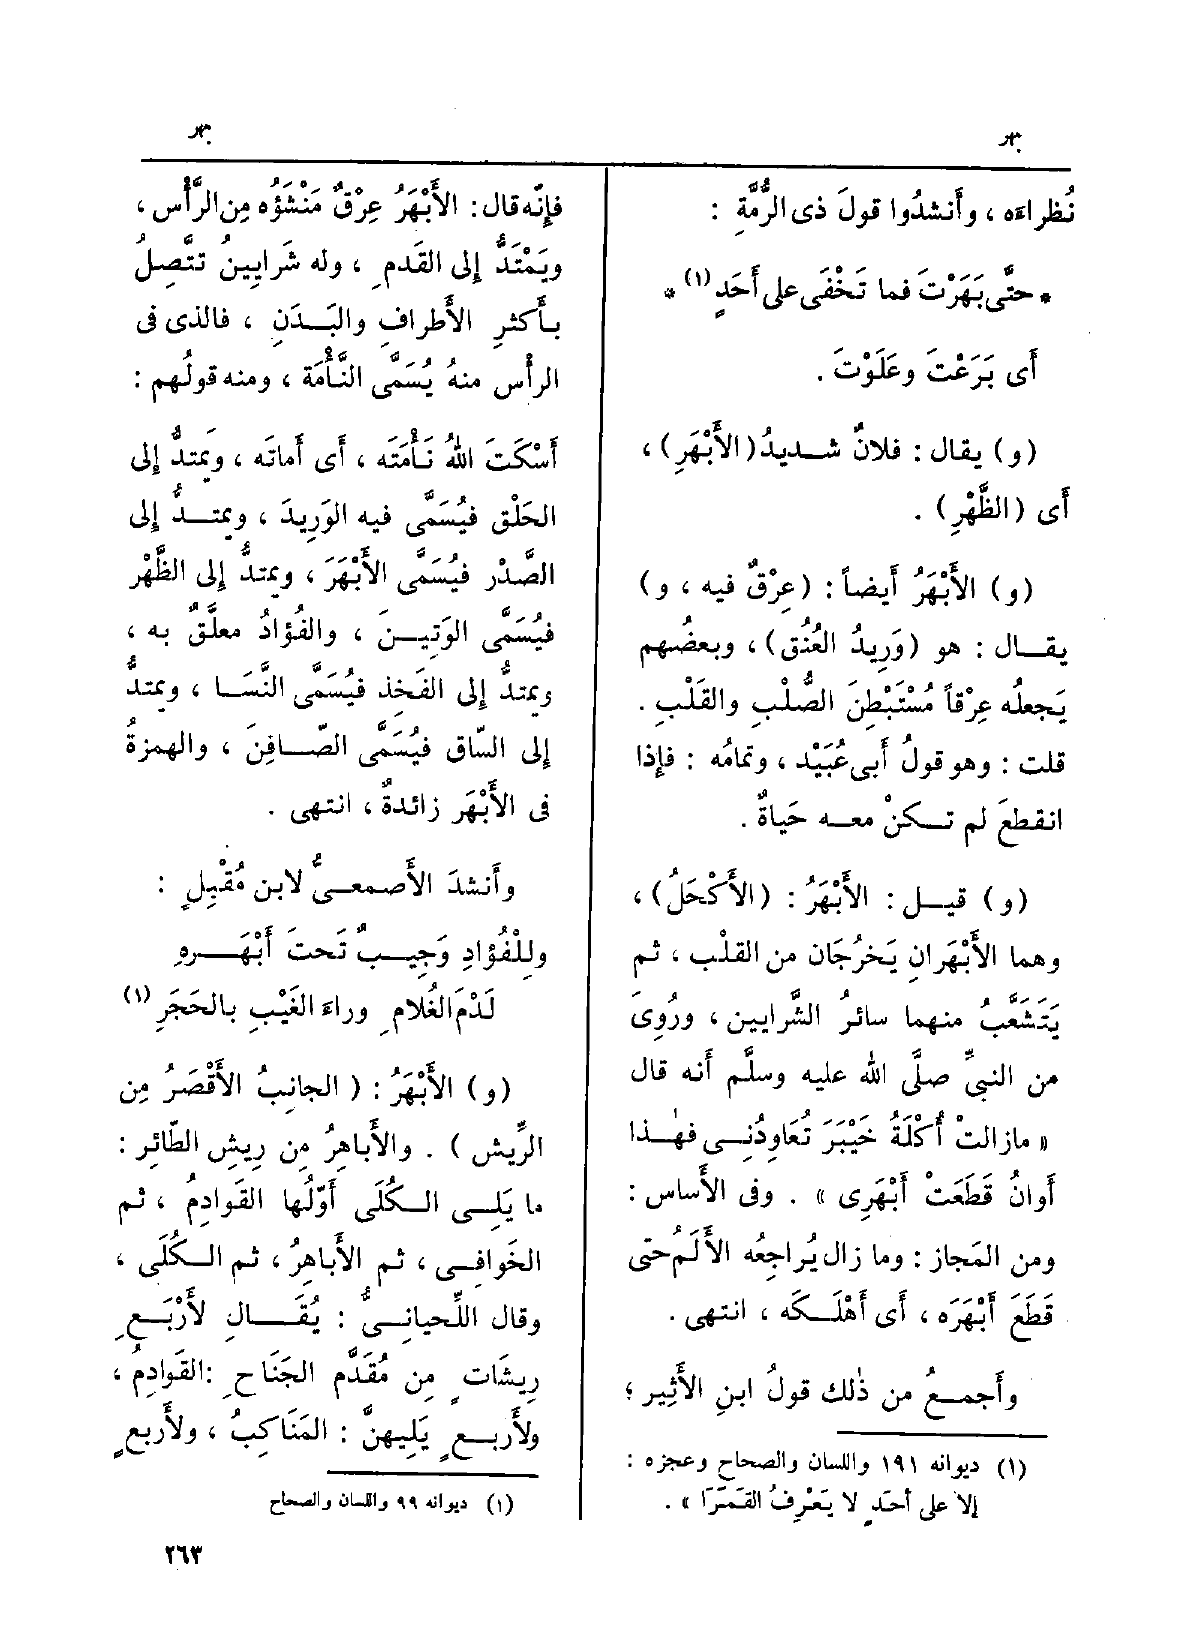 بهر
بهر
نُظراءَه ، وأَنشدُوا قولَ ذى الرُّمَّةِ :
* حتَّى بَهَرْتَ فما تَخْفَى على أَحَدٍ (١) *
أَى بَرَعْتَ وعَلَوْتَ .
(و) يقال : فلانٌ شديدُ (الأَبْهَرِ) ،
أَى (الظَّهْرِ) .
(و) الأَبْهَرُ أَيضاً : (عِرْقٌ فيه ، و)
يقال : هو (وَرِيدُ العُنُق) ، وبعضُهم
يَجعلُه عِرْقاً مُسْتَبْطِنَ الصُّلْبِ والقَلْبِ .
قلت : وهو قولُ أَبى عُبَيْد ، وتمامُه : فإِذا
انقطعَ لم تكنْ معه حَياةٌ .
(و) قيل : الأَبْهَرُ : (الأَكْحَلُ) ،
وهما الأَبْهَرانِ يَخرُجَان من القلب ، ثم
يَتَشَعَّبُ منهما سائرُ الشَّرايين ، ورُوِىَ
من النبىِّ صلَّى الله عليه وسلَّم أَنه قال
« مازالتْ أُكْلَةُ خَيْبَرَ تُعَاوِدُنِى فهٰذا
أَوانُ قَطَعَتْ أَبْهَرِى » . وفى الأَساس :
ومن المَجاز : وما زال يُراجِعُه الأَلَمُ حتى
قَطَعَ أَبْهَرَه ، أَى أَهْلَكَه ، انتهى .
وأَجمعُ من ذٰلك قولُ ابنِ الأَثِير ؛
(١) ديوانه ١٩١ واللسان والصحاح وعجزه :
إلا على أحَدٍ لا يَعْرِفُ القَمَرَا » .
فإِنّه قال : الأَبْهَرُ عِرْقٌ مَنْشَؤُه مِن الرَّأْس ،
ويَمْتَدُّ إِلى القَدمِ ، وله شَرايِينُ تتَّصِلُ
بأَكثرِ الأَطرافِ والبَدَنِ ، فالذى فى
الرأْس منهُ يُسَمَّى النَّأْمَةَ ، ومنه قولُهم :
أَسْكَتَ اللهُ نَأْمَتَه ، أَى أَماتَه ، ويمتدُّ إِلى
الحَلْق فيُسَمَّى فيه الوَرِيدَ ، ويمتدُّ إِلى
الصَّدْر فيُسَمَّى الأَبْهَرَ ، ويمتدُّ إِلى الظَّهْر
فيُسَمَّى الوَتِينَ ، والفُؤادُ معلَّقٌ به ،
ويمتدُّ إِلى الفَخذِ فيُسَمَّى النَّسَا ، ويمتدُّ
إِلى السَّاق فيُسَمَّى الصَّافِنَ ، والهمزةُ
فى الأَبْهَر زائدةٌ ، انتهى .
وأَنشدَ الأَصمعىُّ لابن مُقْبِلٍ :
ولِلْفُؤادِ وَجِيبٌ تَحتَ أَبْهَرِهِ
لَدْمَ الغُلامِ وراءَ الغَيْبِ بالحَجَرِ (١)
(و) الأَبْهَرُ : ( الجانِبُ الأَقْصَرُ مِن
الرِّيش ) . والأَباهِرُ مِن رِيشِ الطّائر :
ما يَلِى الكُلَى أَوّلُها القَوادِمُ ، ثم
الخَوافِى ، ثم الأَباهِرُ ، ثم الكُلَى ،
وقال اللِّحيانِىُّ : يُقَال لأَرْبَعِ
رِيشَاتٍ مِن مُقَدَّم الجَنَاحِ : القَوادِمُ ،
ولأَربعٍ يَلِيهنَّ : المَنَاكِبُ ، ولأَربعٍ
(١) ديوانه ٩٩ واللسان والصحاح
٢٦٣